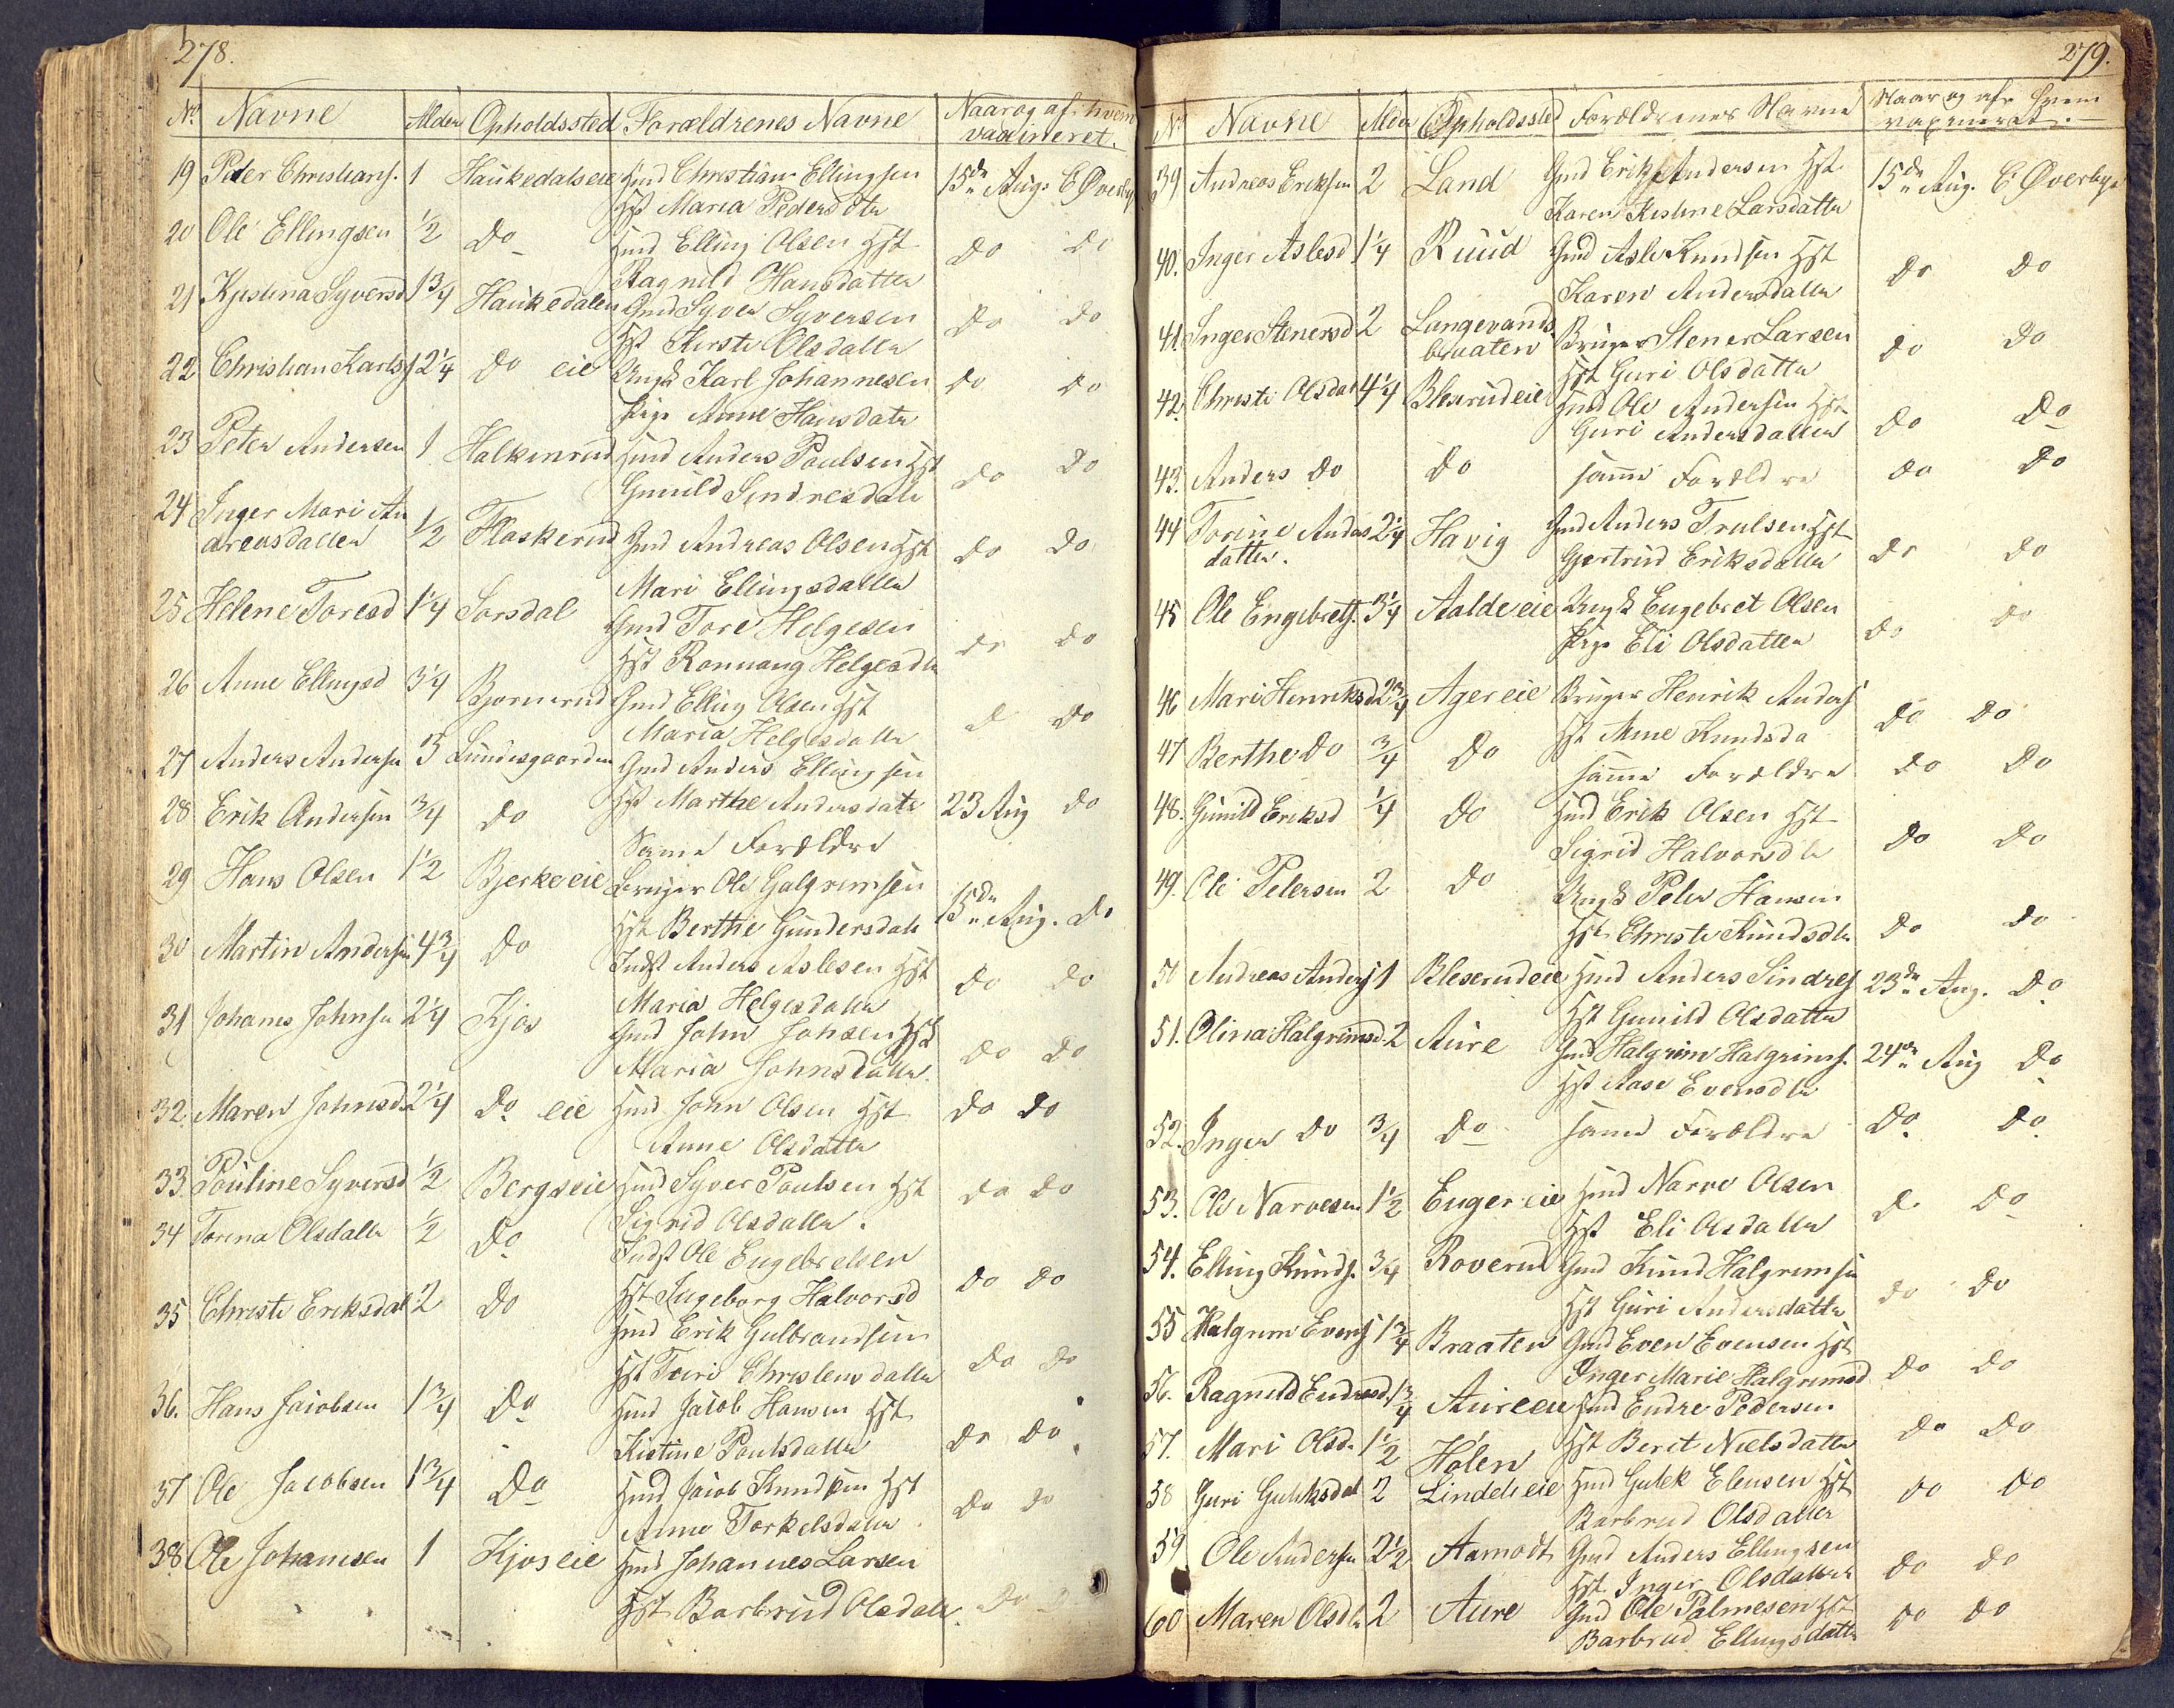 278.
No. Navne Alder Opholdssted Forældrenes Navne Naar og af hvem
vaccineret.
19 Peter Christians. 1 Haukedalseie Hmd Christian Ellingsen 15de Aug. E Øverby
Hst Maria Pedersdtr
20 Ole Ellingsen 1/2 Do Hmd Elling Olsen Hst Do Do
Ragnild Hansdatter
21 Kjestina Syversd 1 3/4 Haukedalen Gmd Syver Syversen Do Do
Hst Kersti Olsdatter
22 Christian Karls. 2 1/4 Do eie Ungk Karl Johannesen Do Do
Pige Anne Hansdatr
23 Peter Andersen 1 Halkinrud Hmd Anders Paulsen Hst Do Do
Gunild Sindresdatr
24 Inger Mari An
dreasdatter 1/2 Flaskerud Gmd Andreas Olsen Hst Do Do
Mari Ellingsdatter
25 Helene Toresd 1 1/4 Sorsdal Gmd Tore Helgesen Do Do
Hst Ronnaug Helgesdtr
26 Anne Ellingsd 3 1/4 Bjornerud Gmd Elling Olsen Hst D Do
Maria Helgesdatter
27 Anders Andersen 3 Lundesgaarden Gmd Anders Ellingsen
Hst Marthe Andersdatr 23 Aug Do
28 Erik Andersen 3/4 Do Same Forældre
29 Hans Olsen 1 1/2 Bjerke eie Bruger Ole Galgrimsen 15de Aug. Do
Hst Berthe Gundersdatr
30 Martin Andersen 4 3/4 Do Indst Anders Aslesen Hst Do Do
Maria Helgesdatter
31 Johanes Johnsen 2 1/4 Kjos Gmd John Johnsen Hst Do Do
Maria Johnsdatter
32 Maren Johnsd. 2 1/4 Do eie Hmd John Olsen Hst Do Do
Anne Olsdatter
33 Pauline Syversd 1/2 Bergs eie Hmd Syver Paulsen Hst Do Do
Sigrid Olsdatter.
34 Torina Olsdatter 1/2 Do Indst Ole Engebretsen Do Do
Hst Ingeborg Halvorsd
35 Christi Eriksdat 2 Do Hmd Erik Gulbrandsen Do Do
Hst Turi Christensdatter
36. Hans Jacobsen 1 3/4 Do Hmd Jacob Hansen Hst Do Do
Kistine Paulsdatter
37 Ole Jacobsen 1 3/4 Do Hmd Jacob Knudsen Hst Do Do
Anne Torkelsdatter
38. Ole Johannesen 1 Kjos eie Hmd Johannes Larsen
Hst Barbrud Olsdatr. Do
279.
No Navne Alder Opholdssted Forældrenes Navne Naar og af hvem
vaxineret.
39 Andreas Eriksen 2 Land Gmd Erik Andersen Hst 15de Aug. E Øverbye
Karen Kistine Larsdatter
40. Inger Aslesd 1 1/4 Ruud Gmd Asle Knudsen Hst Do Do
Karen Andersdatter
41. Inger Stenersd 2 Langevands
braaten Bruger Stener Larsen Do Do
Hst Guri Olsdatter
42. Christi Olsdat 4 1/4 Bleserud eie Hmd Ole Andersen Hst Do Do
Guri Andersdatter
43. Anders Do Do samme Forældre Do Do
44 Torine Anders
datter. 2 1/4 Havig Gmd Anders Trulsen Hst Do Do
Gjertrud Eriksdatter
45 Ole Engebrets. 3 1/4 Aalde eie Ungk Engebret Olsen Do Do
Pige Eli Olsdatter
46 Mari Henriksd 2 3/4 Ager eie Bruger Henrik Anders. Do Do
Hst Anne Knudsda
47 Berthe Do 3/4 Do samme Forældre Do Do
48. Gunild Eriksd 1/4 Do Hmd Erik Olsen Hst Do Do
Sigrid Halvorsdtr
49. Ole Petersen 2 Do Ungk Peter Hansen
Hst Christi Knudsdtr Do Do
50 Andreas Anders. 1 Bleserud eie Hmd Anders Sindres. 23de Aug. Do
Hst Gunild Olsdatter
51. Olina Halgrimsd. 2 Aure Gmd Halgrim Halgrims. 24de Aug Do
Hst Aase Evensdtr
52. Inger Do 3/4 Do samme Forældre Do Do
53. Ole Narvesen 1 1/2 Enger eie Hmd Narve Olsen Do Do
Hst Eli Olsdatter
54. Elling Knuds. 3/4 Roverud Gmd Knud Halgrimsen Do Do
Hst Guri Andersdatter
55 Halgrim Evens. 1 3/4 Braaten Gmd Even Evensen Hst Do Do
Inger Marie Halgrimsd
56. Ragnild Endresd. 1 3/4 Aure eie Hmd Endre Pedersen Do Do
Hst Berit Nielsdatter
57. Mari Olsd. 1 1/2 Holen
58 Guri Guliksdat 2 Lindeli eie Hmd Gulek Elensen Hst Do Do
Barbrud Olsdatter
59. Ole Andersen 2 1/2 Aamodt Gmd Anders Ellingsen Do Do
Hst Inger Olsdatter
60 Maren Olsdtr 2 Aure Gmd Ole Palmesen Hst Do Do
Barbrud Ellingsdatter